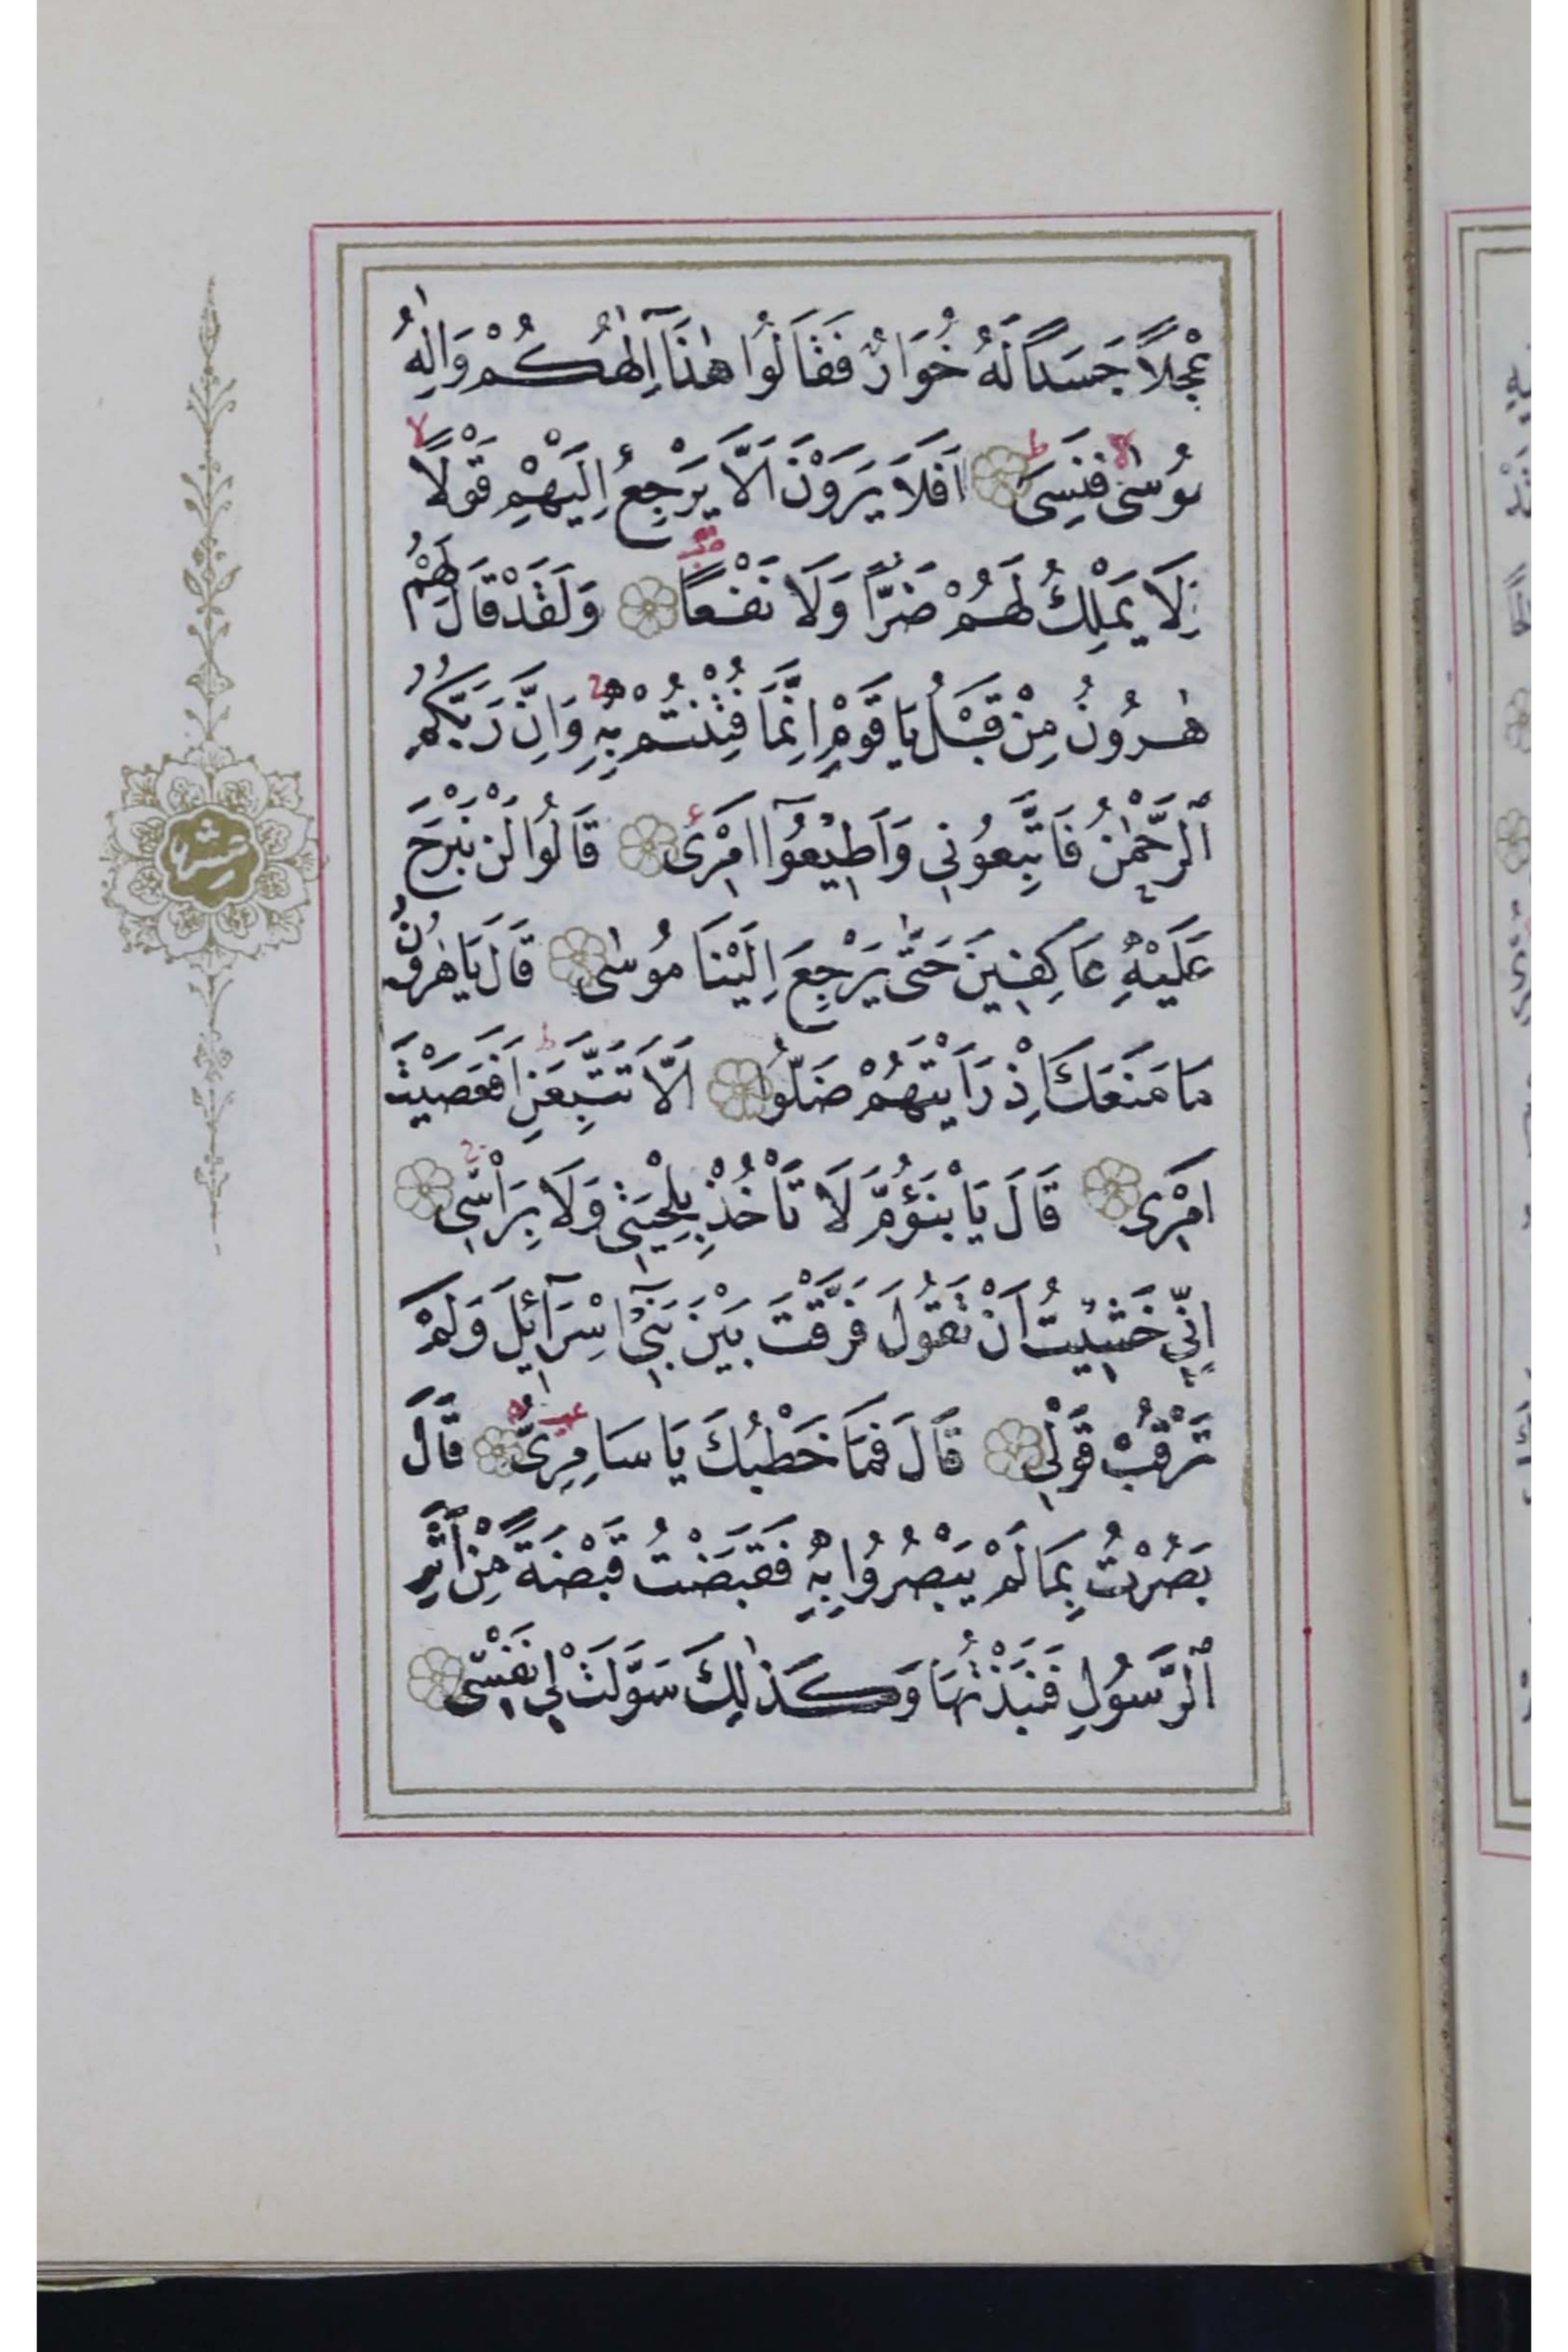 عِجْلاً جَسَداً لَهُ خُوَارٌ فَقَالُوا هٰذَٓا اِلٰهُكُمْ وَاِلٰهُ
مُوسٰى فَنَسِىَ اَفَلَا يَرَوْنَ اَلَّا يَرْجِعُ اِلَيْهِمْ قَوْلًا
وَلَا يَمْلِكُ لَهُمْ ضَرًّا وَلَا نَفْعًا وَلَقَدْ قَالَ لَهُمْ
هٰرُونُ مِنْ قَبْلُ يَا قَوْمِ اِنَّمَا فُتِنْتُمْ بِهِ وَاِنَّ رَبَّكُمُ
الرَّحْمٰنُ فَاتَّبِعُونِى وَاَطِيعُٓوا اَمْرِى قَالُوا لَنْ نَبْرَحَ
عَلَيْهِ عَاكِفِينَ حَتّٰى يَرْجِعَ اِلَيْنَا مُوسٰى قَالَ يَا هٰرُونُ
مَا مَنَعَكَ اِذْ رَاَيْتَهُمْ ضَلُّوا اَلَّا تَتَّبِعَنِ اَفَعَصَيْتَ
اَمْرِى قَالَ يَا بْنَؤُمَّ لَا تَاْخُذْ بِلِحْيَتِى وَلَا بِرَاْسِى
اِنِّى خَشِيتُ اَنْ تَقُولَ فَرَّقْتَ بَيْنَ بَنِٓى اِسْرَٓائِلَ وَلَمْ
تَرْقُبْ قَوْلِى قَالَ فَمَا خَطْبُكَ يَا سَامِرِىُّ قَالَ
بَصُرْتُ بِمَا لَمْ يَبْصُرُوا بِهِ فَقَبَضْتُ قَبْضَةً مِنْ اَثَرِ
الرَّسُولِ فَنَبَذْتُهَا وَكَذٰلِكَ سَوَّلَتْ لِى نَفْسِى
عشر